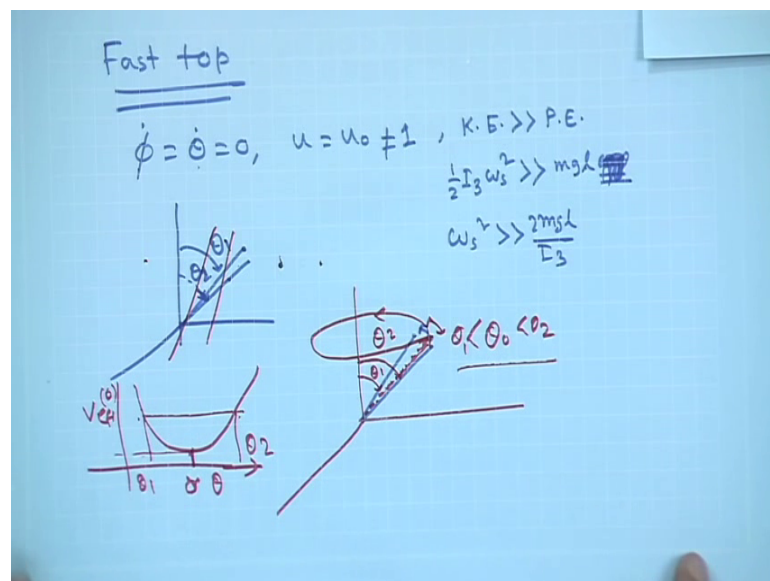 Fast top
φ̇ = θ̇ = 0, u = u₀ ≠ 1, K.E. >> P.E.
½ I₃ ωₛ² >> mgl
ωₛ² >> 2mgl / I₃
θ₁
θ₂
θ₂
θ₁
θ₁ < θ₀ < θ₂
V_eff(θ)
θ₂
θ₁ θ